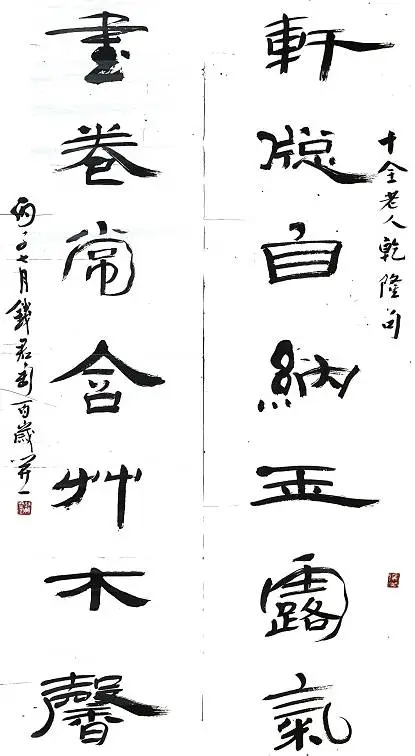 十全老人乾隆句
軒牕自納玉露氣
書卷常含艸木馨
丙子七月錢君匋百歲